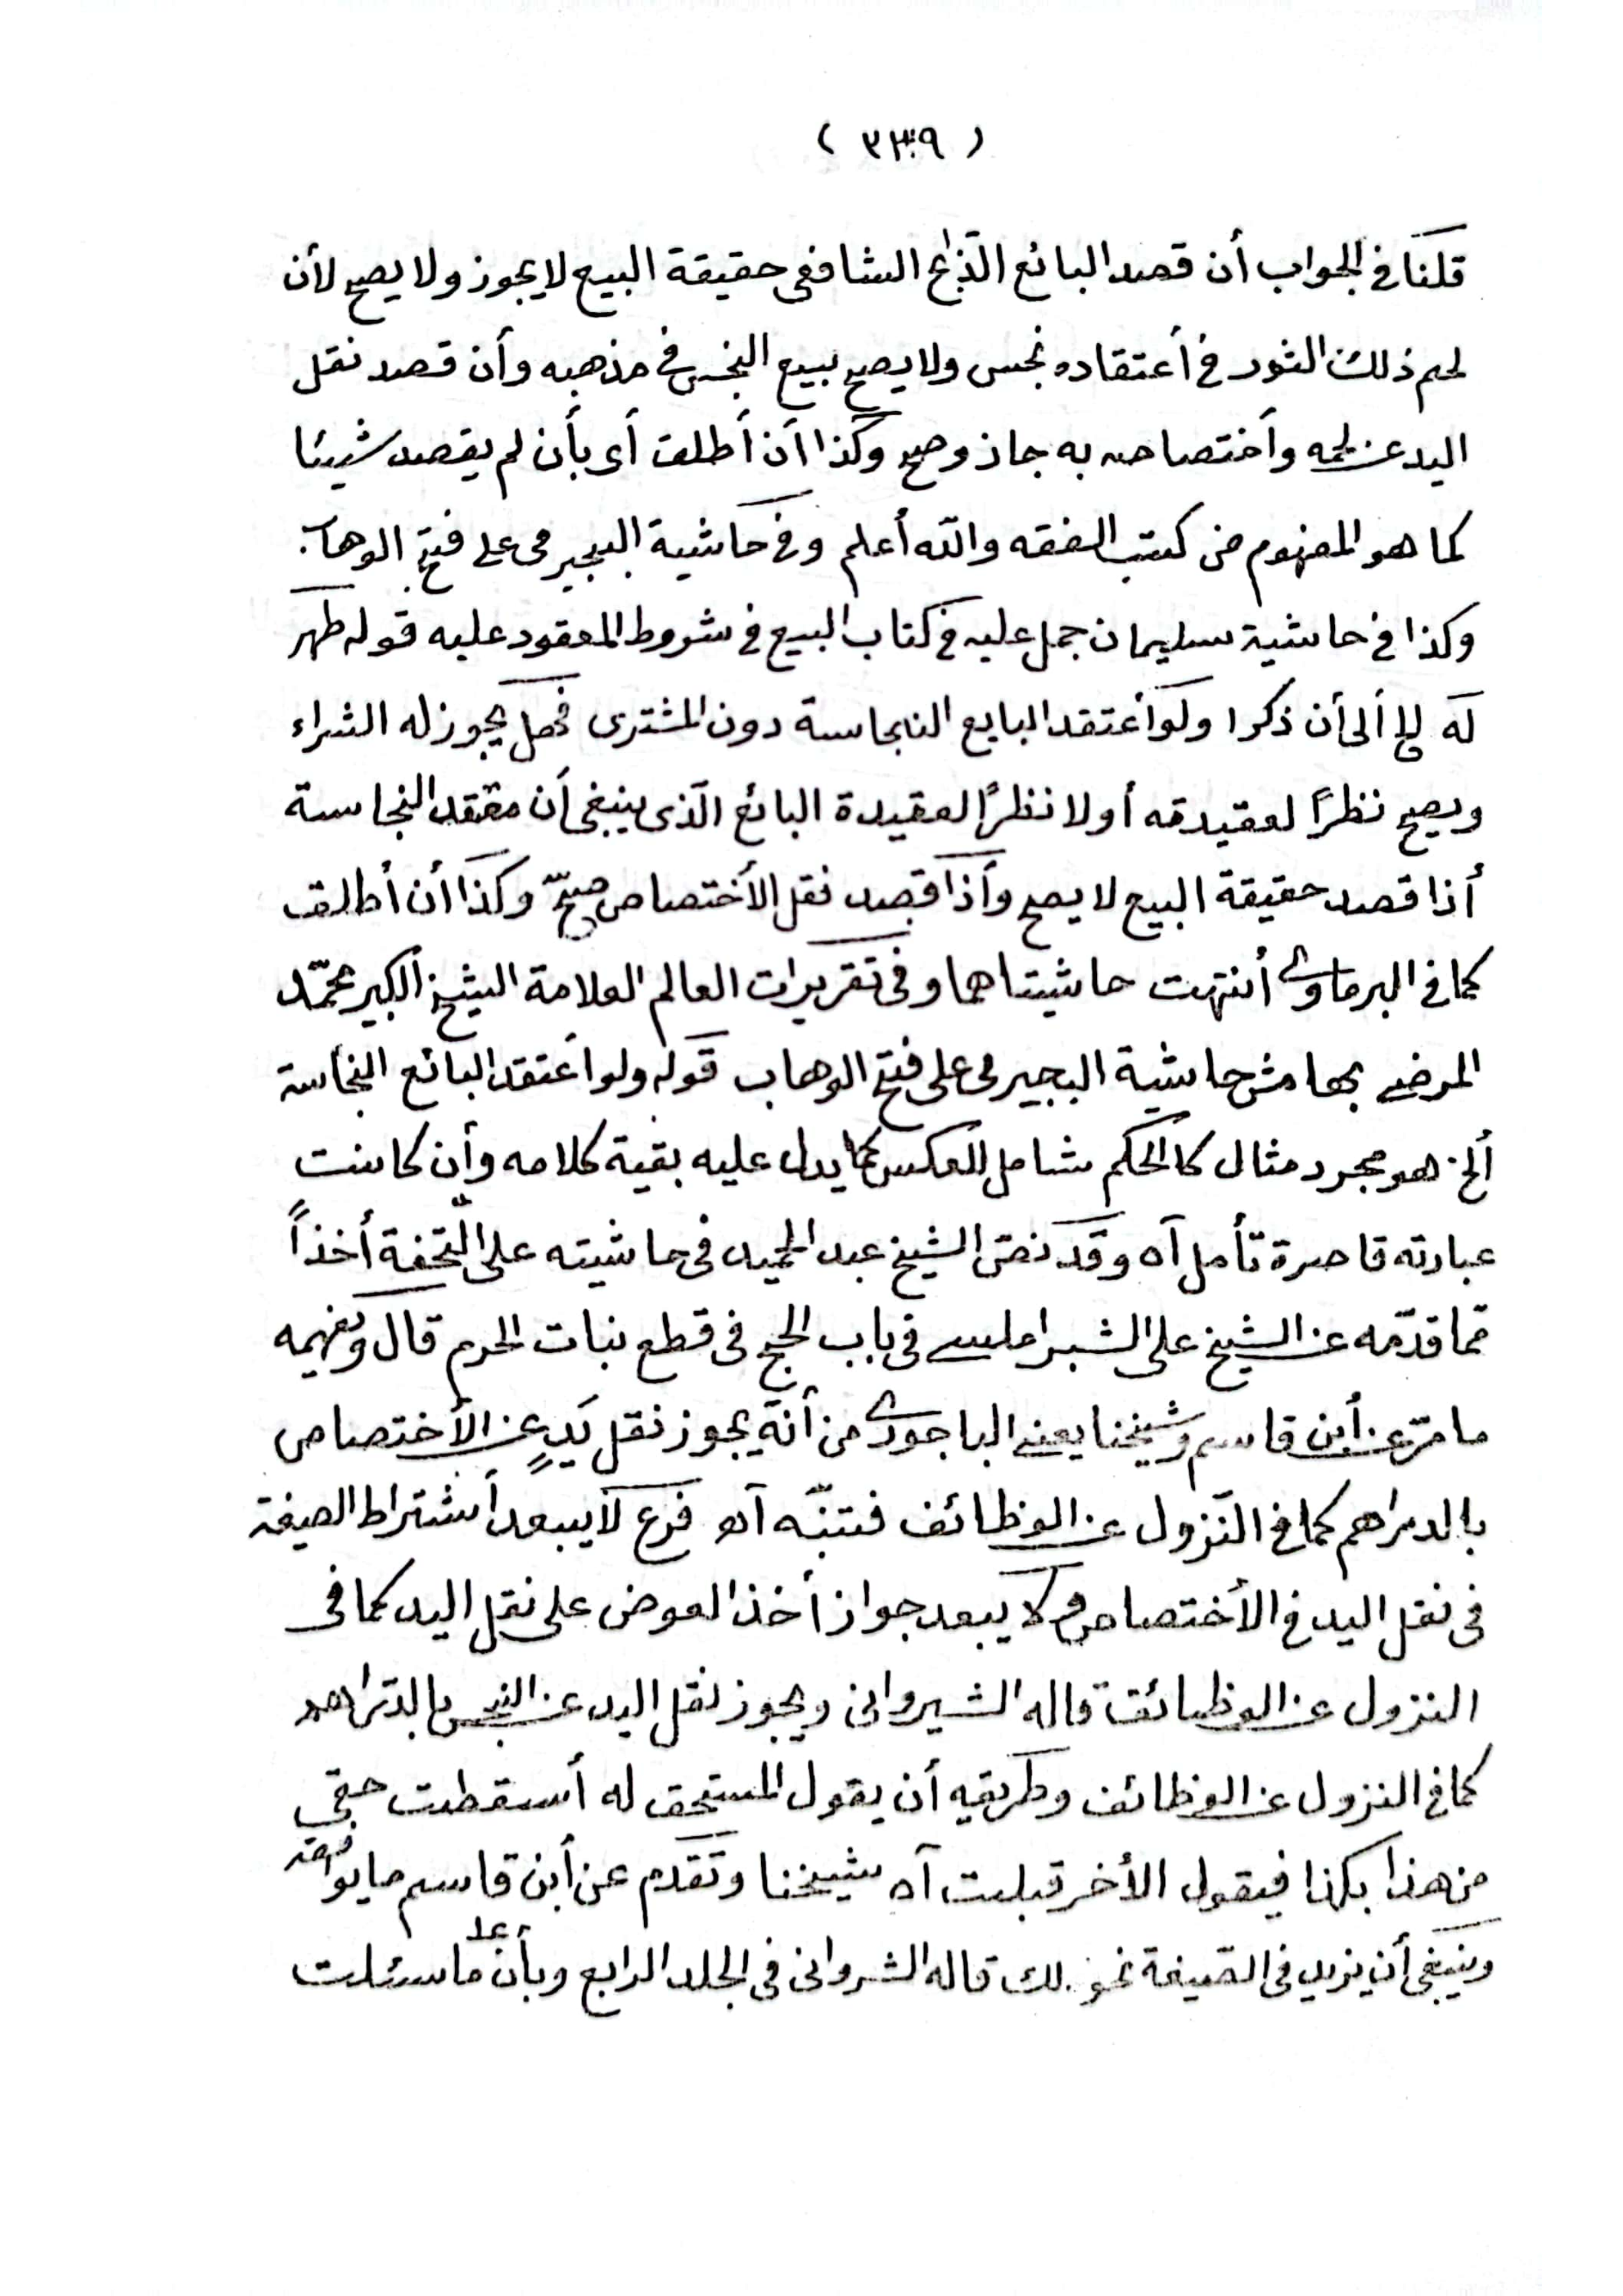 ( ٣٣٩ )
قلنا في الجواب أن قصد البائع الذابح الشافعى حقيقة البيع لا يجوز ولا يصح لأن
لحم ذلك الثور في أعتقاده نجس ولا يصح بيع النجس في مذهبه وأن قصد نقل
اليد عن لحمه وأختصاصه به جاز وصح وكذا أن أطلق أى بأن لم يقصد شيئا
كما هو المفهوم من كتب الفقه والله أعلم وفى حاشية البجيرمى على فتح الوهاب
وكذا في حاشية سليمان جمل عليه في كتاب البيع في شروط المعقود عليه قوله طهر
له الخ ألى أن ذكرا ولو أعتقد البايع النجاسة دون المشترى فهل يجوز له الشراء
ويصح نظرًا لعقيدته أولا نظرًا لعقيدة البائع الذى ينبغى أن معتقد النجاسة
أذا قصد حقيقة البيع لا يصح وأذا قصد نقل الأختصاص صحّ وكذا أن أطلق
كما في البرماوى أنتهت حاشيتاهما وفى تقريرات العالم العلامة الشيخ الكبير محمّد
المرضعي بهامش حاشية البجيرمى على فتح الوهاب قوله ولو أعتقد البائع النجاسة
ألخ هو مجرد مثال كالحكم شامل للعكس كما يدل عليه بقية كلامه وأن كانت
عبارته قاصرة تأمل آه وقد نصّ الشيخ عبد الحميد فى حاشيته على التّحفة أخذاً
ممّا قدّمه عن الشيخ على الشبراملسي فى باب الحج فى قطع نبات الحرم قال ويفهمه
ما مرّ عن أبن قاسم وشيخنا يعني الباجورى من أنه يجوز نقل يَدٍ عن الأختصاص
بالدراهم كما في النّزول عن الوظائف فتنبّه آه فرع لا يبعد أشتراط الصيغة
فى نقل اليد في الأختصاص ولا يبعد جواز أخذ العوض على نقل اليد كما فى
النزول عن الوظائف قاله الشيروانى ويجوز نقل اليد عن النجس بالدّراهم
كما في النزول عن الوظائف وطريقه أن يقول المستحق له أسقطت حقي
من هذا بكذا فيقول الأخر قبلت آه شيخنا وتقدم عن أبن قاسم ما يوافقه
وينبغى أن يزيد فى الصّيغة نحو لك قاله الشروانى فى الجلد الرابع وبأن على ما سئلت